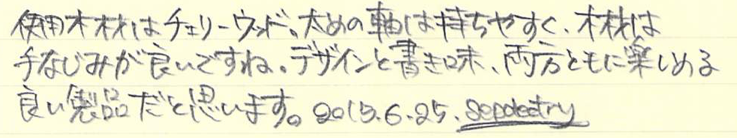 使用木材はチェリーウッド。太めの軸は持ちやすく、木材は
手なじみが良いですね。デザインと書き味、両方ともに楽しめる
良い製品だと思います。2015.6.25.